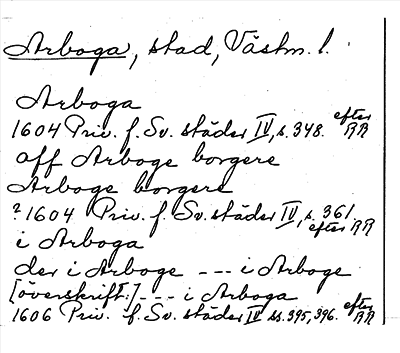 Arboga, stad, Västm. l.
Arboga
1604 Priv. f. Sv. städer IV, s. 348. efter RR
aff Arboge borgere
Arboge borgere
? 1604 Priv. f. Sv. städer IV, s. 361 efter RR
i Arboga
der i Arboge --- i Arboge
[överskift:] --- i Arboga
1606 Priv. f. Sv. städer IV ss. 395, 396. efter RR